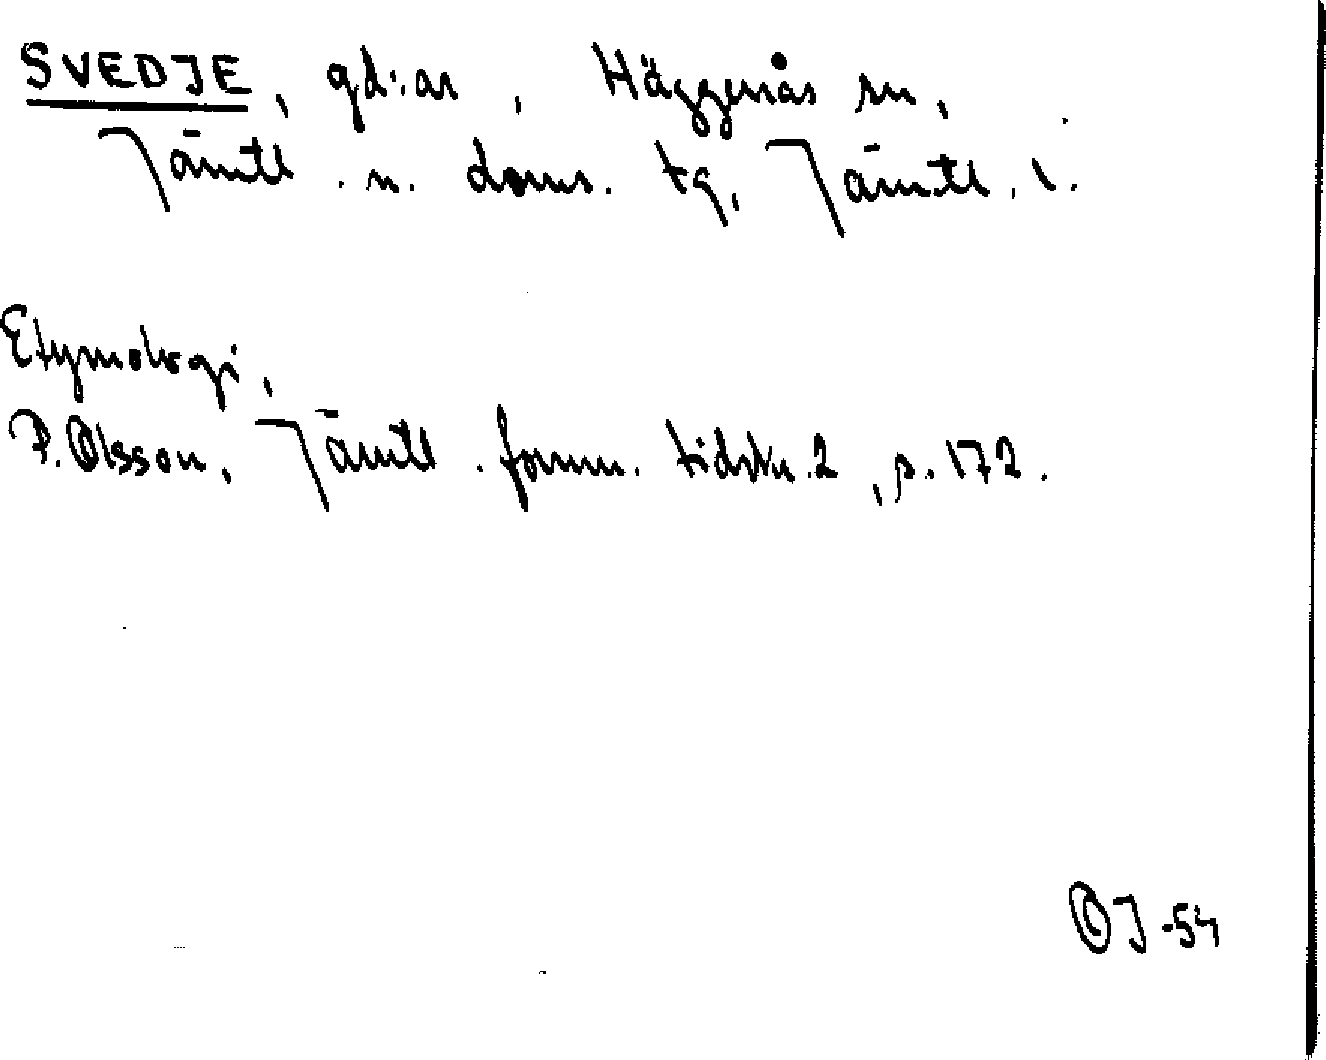 SVEDJE, gd:ar, Häggenås sn,
Jämtl. n. doms. tg, Jämtl. l.
Etymologi,
P. Olsson, Jämtl. fornm. tidskr. 2, s. 172.
OJ -54